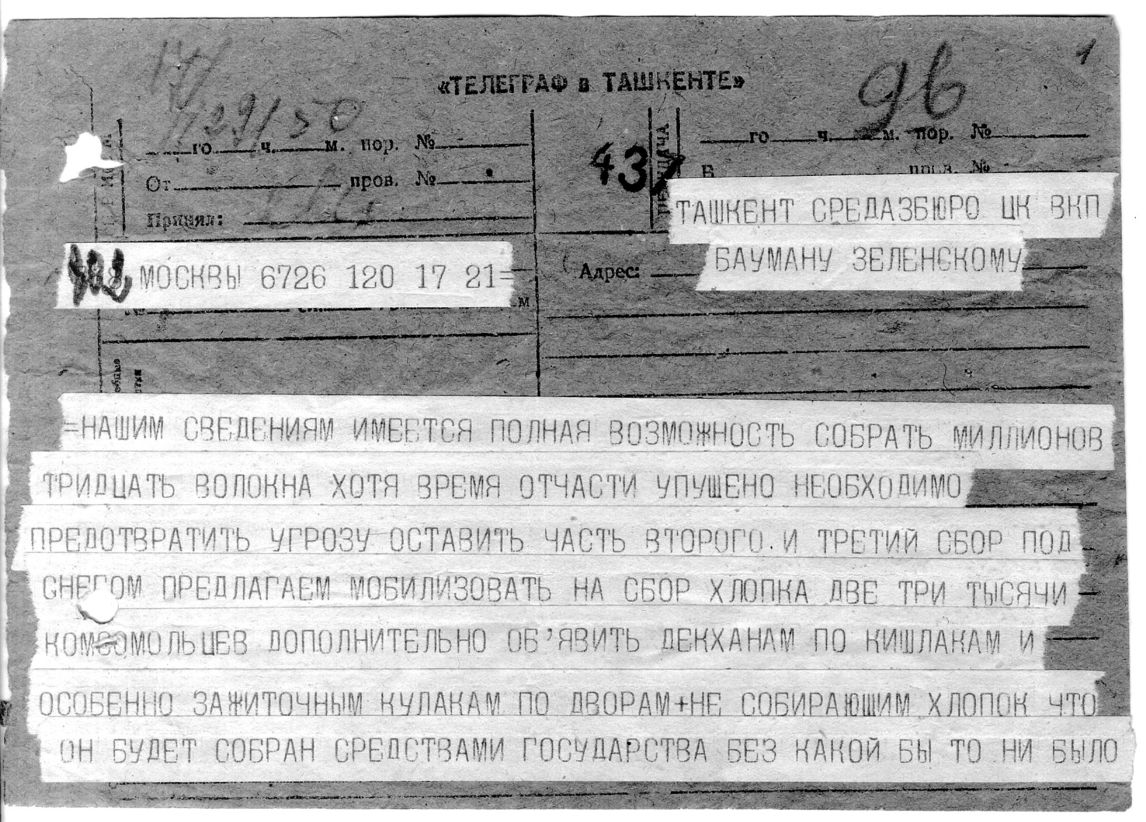 1
96
17/
129/50
«ТЕЛЕГРАФ в ТАШКЕНТЕ»
го ч. м. пор. №
От пров. №
Принял:
437
ПЕРЕДАЧА
го ч. м. пор. №
В пров. №
ТАШКЕНТ СРЕДАЗБЮРО ЦК ВКП
Адрес: БАУМАНУ ЗЕЛЕНСКОМУ
МОСКВЫ 6726 120 17 21=
м
=НАШИМ СВЕДЕНИЯМ ИМЕЕТСЯ ПОЛНАЯ ВОЗМОЖНОСТЬ СОБРАТЬ МИЛЛИОНОВ
ТРИДЦАТЬ ВОЛОКНА ХОТЯ ВРЕМЯ ОТЧАСТИ УПУШЕНО НЕОБХОДИМО
ПРЕДОТВРАТИТЬ УГРОЗУ ОСТАВИТЬ ЧАСТЬ ВТОРОГО.И ТРЕТИЙ СБОР ПОД
СНЕГОМ ПРЕДЛАГАЕМ МОБИЛИЗОВАТЬ НА СБОР ХЛОПКА ДВЕ ТРИ ТЫСЯЧИ
КОМСОМОЛЬЦЕВ ДОПОЛНИТЕЛЬНО ОБ'ЯВИТЬ ДЕКХАНАМ ПО КИШЛАКАМ И
ОСОБЕННО ЗАЖИТОЧНЫМ КУЛАКАМ ПО ДВОРАМ+НЕ СОБИРАЮЩИМ ХЛОПОК ЧТО
ОН БУДЕТ СОБРАН СРЕДСТВАМИ ГОСУДАРСТВА БЕЗ КАКОЙ БЫ ТО НИ БЫЛО